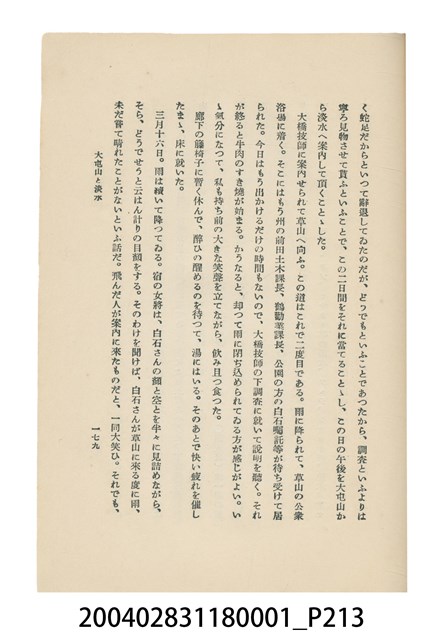 く蛇足だからといつて辭退してゐたのだが、どうでもといふことであつたから、調査といふよりは
寧ろ見物させて貰ふといふことで、この二日間をそれに當てることゝし、この日の午後を大屯山か
ら淡水へ案内して頂くことゝした。
大橋技師に案内せられて草山へ向ふ。この道はこれで二度目である。雨に降られて、草山の公衆
浴場に着く。そこにはもう州の前田土木課長、鶴勸業課長、公園の方の白石囑託等が待ち受けて居
られた。今日はもう出かけるだけの時間もないので、大橋技師の下調査に就いて說明を聽く。それ
が終ると牛肉のすき燒が始まる。かうなると、却つて雨に閉ぢ込められてゐる方が感じがよい。い
ゝ氣分になつて、私も持ち前の大きな笑聲を立てながら、飮み且つ食つた。
廊下の籐椅子に暫く休んで、醉ひの醒めるのを待つて、湯にはいる。そのあとで快い疲れを催し
たまゝ、床に就いた。
三月十六日。雨は續いて降つてゐる。宿の女將は、白石さんの顏と空とを半々に見詰めながら、
そら、どうでせうと云はん計りの目顏をする。そのわけを聞けば、白石さんが草山に來る度に雨、
未だ嘗て晴れたことがないといふ話だ。飛んだ人が案内に來たものだと、一同大笑ひ。それでも、
大屯山と淡水
一七九
200402831180001_P213